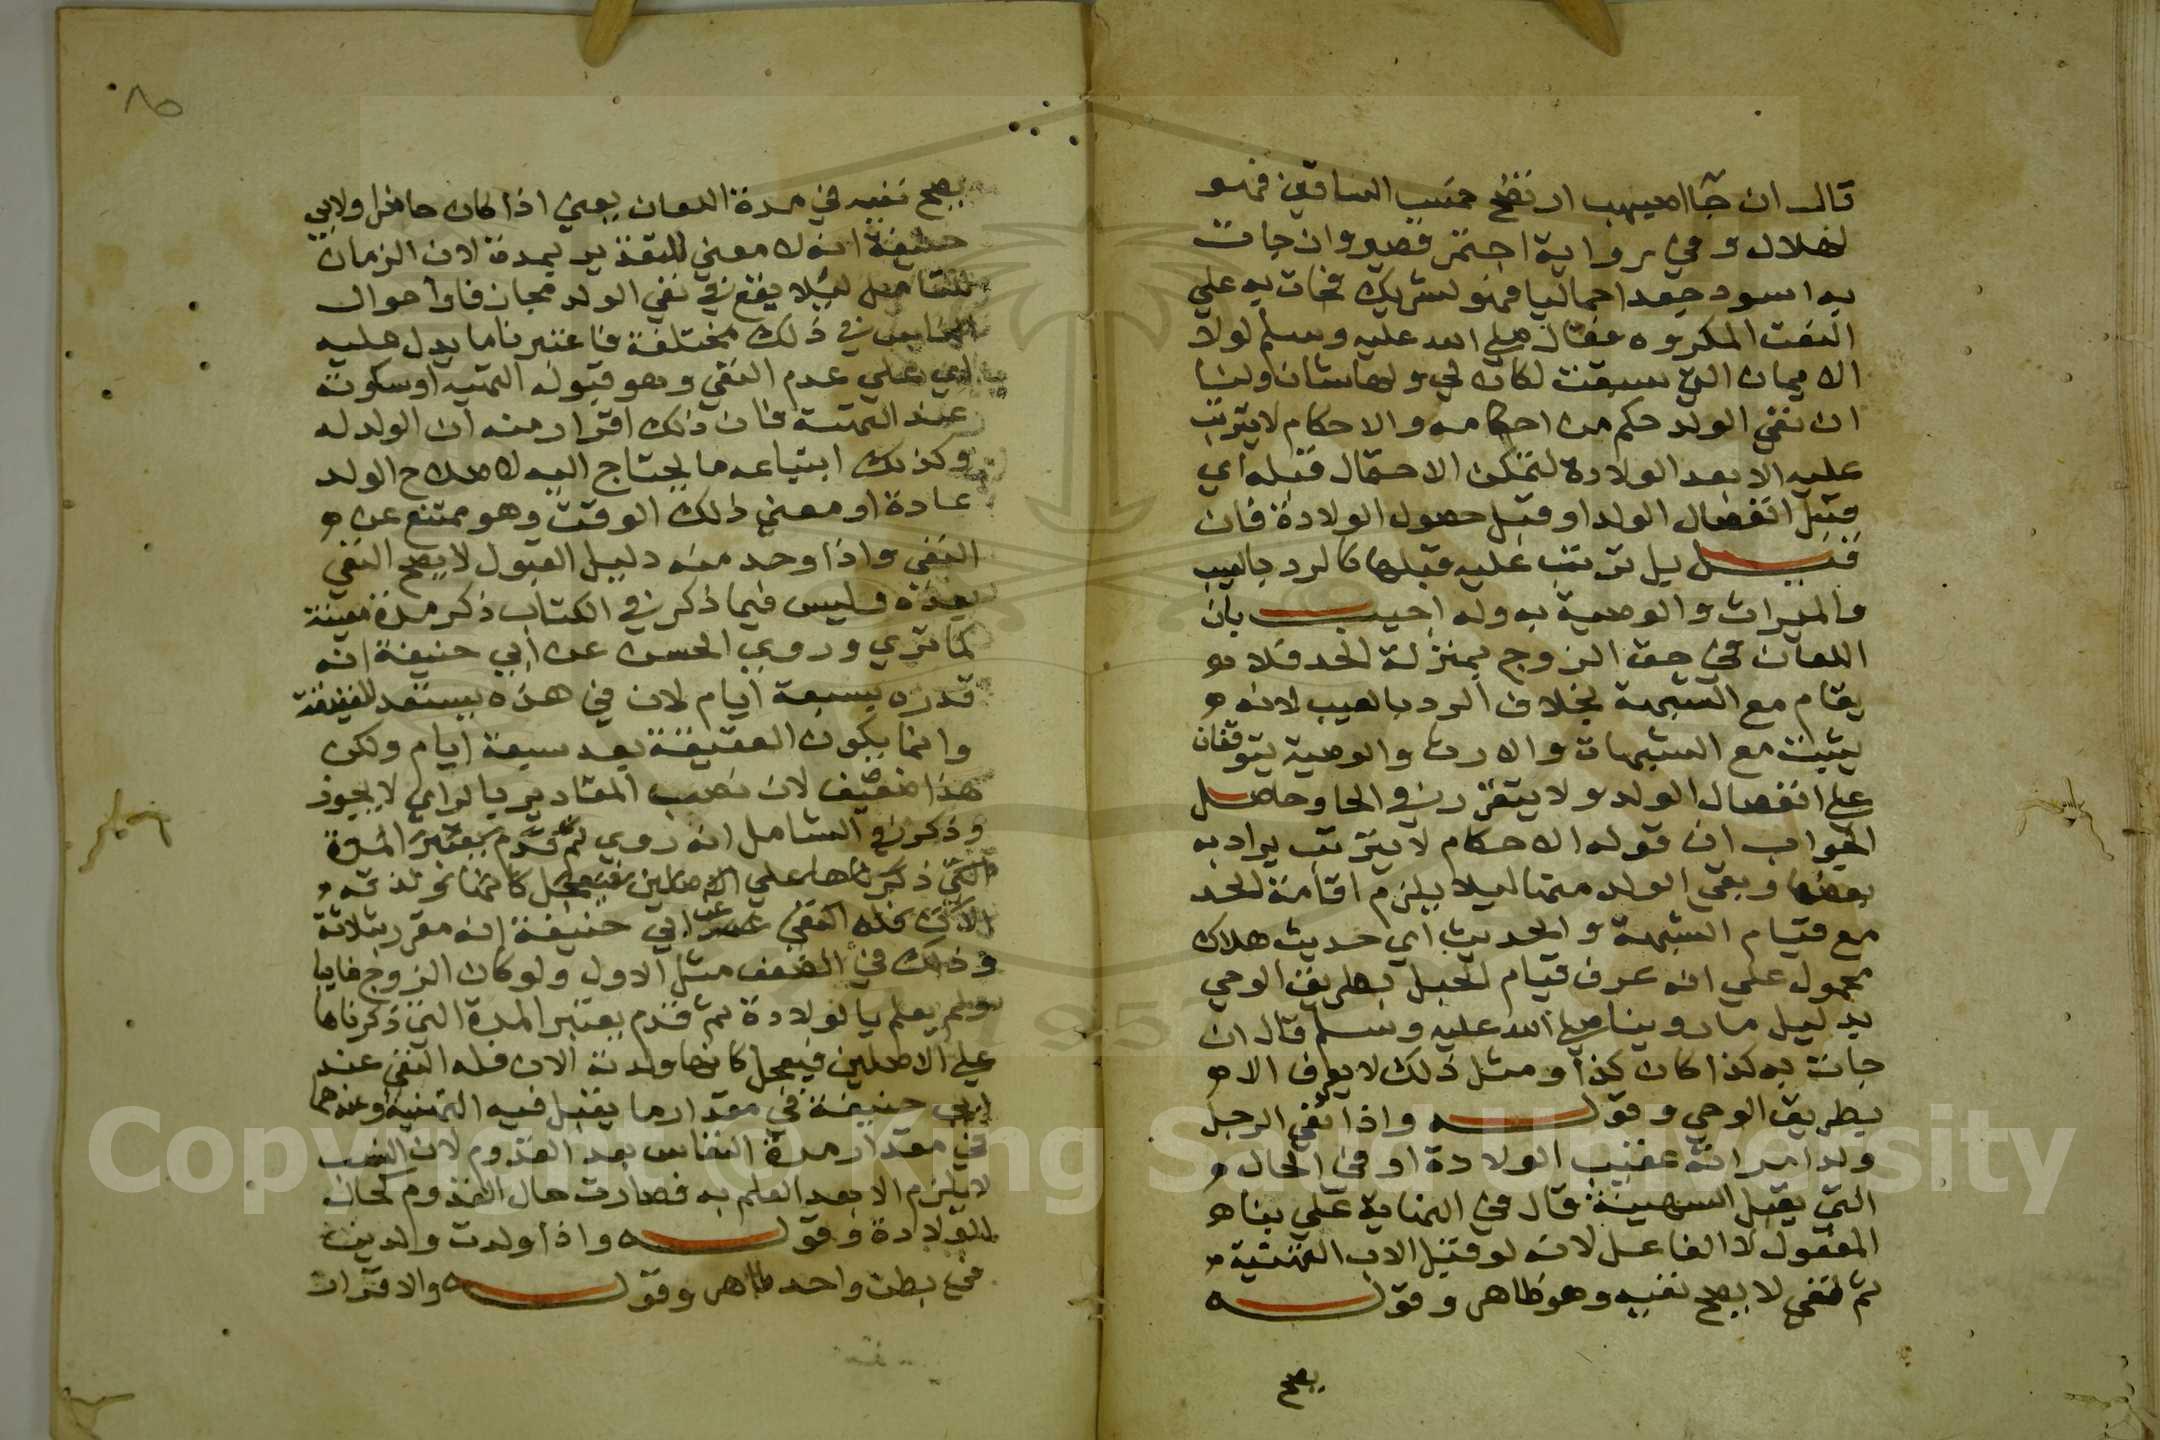 قال ان جاا صيهب ارتفخ حمش الساقين فهو
لهلال وفي رواية احتمر قصير وان جات
به اسود جعدا جماليا فهو لشريك فجات به علي
النعت المكروه فقال صلي الله عليه وسلم لولا
الايمان التي سبقت لكان لي ولها شان ولنا
ان نفي الولد حكم من احكامه والاحكام لا يترتب
عليه الا بعد الولادة لتمكن الاحتمال قبله اي
قبل انفصال الولد او قبل حصول الولادة فان
قيل بل ترتب عليه قبلها كالرد بالعيب
والميراث والوصية به وله اجيب بان
اللعان في حق الزوج بمنزلة الحد فلا
يقام مع الشبهة بخلاف الرد بالعيب لانه
يثبت مع الشبهات والارث والوصية يتوقفان
علي انفصال الولد ولا يتقرر في الحا وحاصل
الجواب ان قوله الاحكام لا يترتب يراد به
بعضها وبقي الولد متنا ليلا يلزم اقامة الحد
مع قيام الشبهة والحديث اي حديث هلاك
محمول علي انه عرف قيام الحبل بطريق الوحي
بدليل ما روينا صلي الله عليه وسلم قال ان
جات به كذا كان كذا ومثل ذلك لا يعرف الا
بطريق الوحي وقوله واذا نفي الرجل
ولد امراته عقيب الولادة او في الحال
التي يقبل التهنية قال في النهاية علي بنا
المفعول لا الفاعل لانه لو قبل الاب التهنية
ثم نفي لا يصح نفيه وهو ظاهر وقوله
يصح
يصح نفيه في مدة اللعان يعني اذا كان حاضرا ولابي
حنيفة انه لا معني للتقدير بمدة لان الزمان
للتامل ليلا يقع في نفي الولد مجازفا واحوال
الناس في ذلك مختلفة فاعتبرنا ما يدل عليه
اي علي عدم النفي وهو قبوله التهنية او سكوته
عند التهنية فان ذلك اقرار منه ان الولد له
وكذلك ابتياعه ما يحتاج اليه لاصلاح الولد
عادة او مضي ذلك الوقت وهو ممتنع عن
النفي واذا وجد منه دليل القبول لا يصح النفي
بعده وليس فيما ذكر في الكتاب ذكر مدة معينة
كما تري وروي الحسن عن ابي حنيفة انه
قدره بسبعة ايام لان في هذه يستعد للعقيقة
وانما يكون العقيقة بعد سبعة ايام ولكن
هذا ضعيف لان نصب المقادير بالراي لا يجوز
وذكر في الشامل انه روي ثم قدم يعتبر المدة
التي ذكرناها علي الاصلين فيجعل كانها ولدته
الان فله النفي عند ابي حنيفة انه مقرر بثلاثة
وذلك في الضعف مثل الاول ولو كان الزوج غايبا
ولم يعلم بالولادة ثم قدم يعتبر المدة التي ذكرناها
علي الاصلين فيجعل كانها ولدته الان فله النفي عند
ابي حنيفة في مقدار ما يقبل فيه التهنية وعندهما
في مقدار مدة النفاس بعد القدوم لان النسب
لا يلزم الا بعد العلم به فصارت حال القدوم كحال
الولادة وقوله واذا ولدت ولدين
في بطن واحد ظاهر وقوله والاقرار